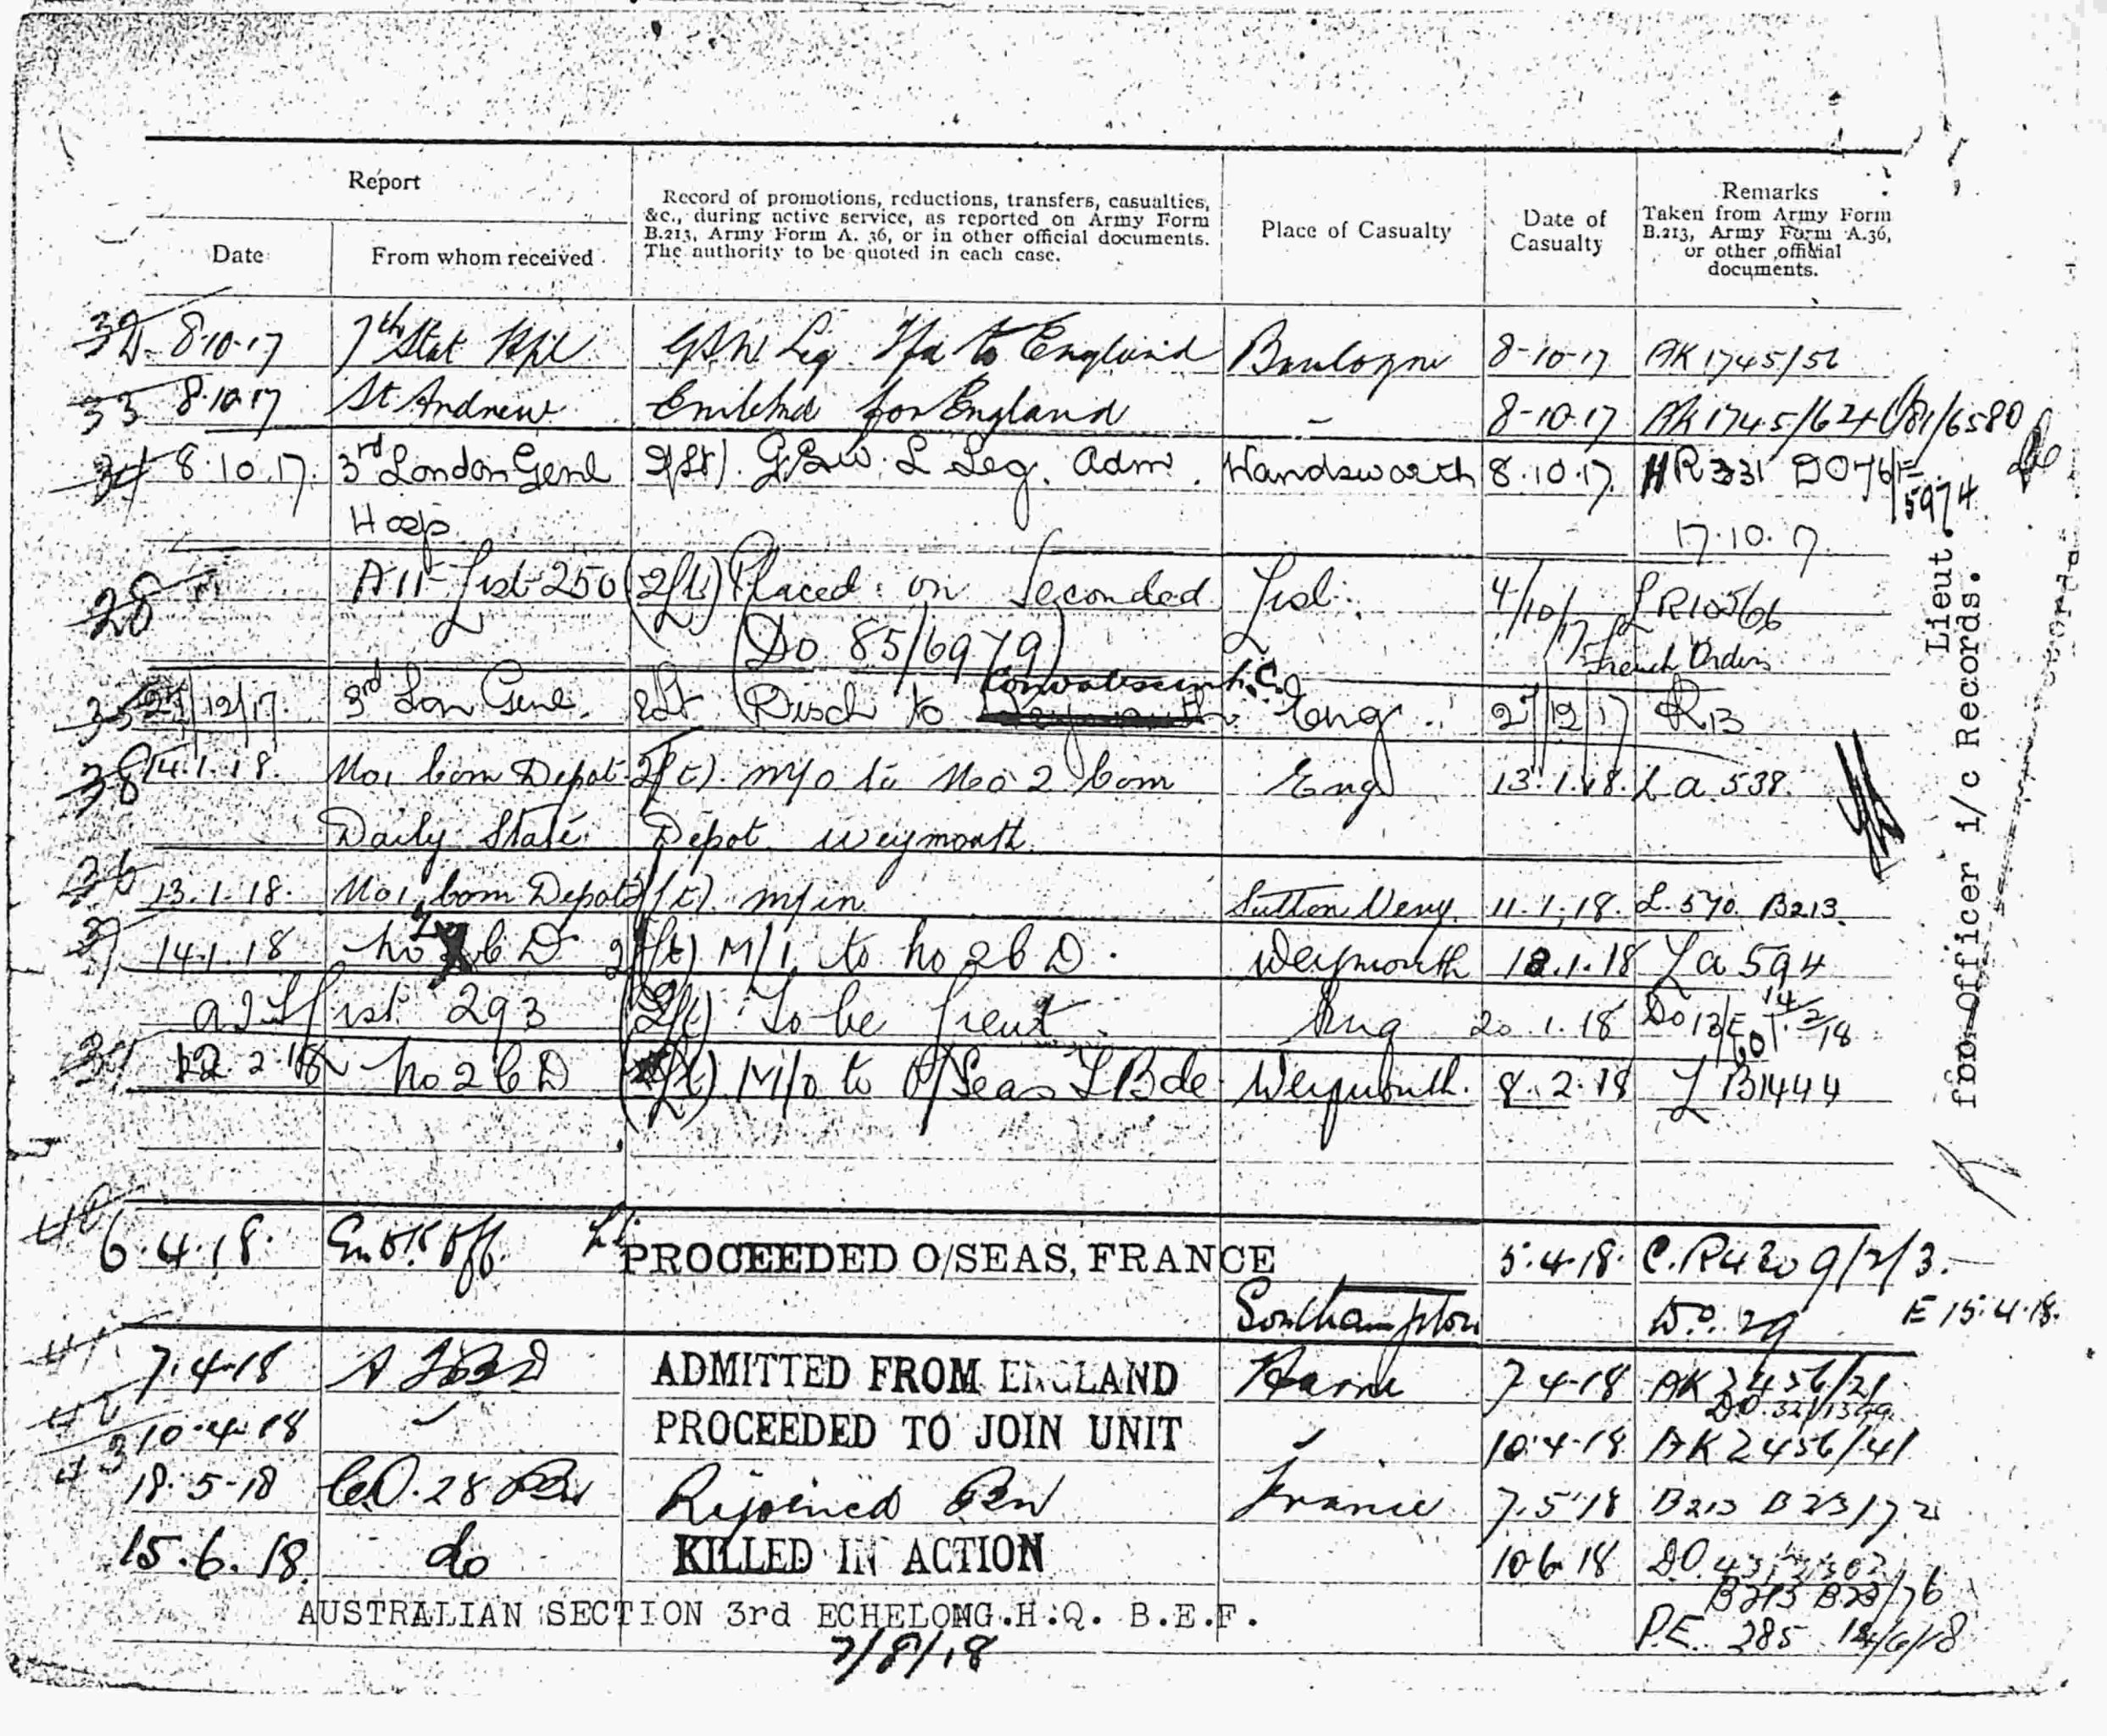 Report
Record of promotions, reductions, transfers, casualties,
&c., during active service, as reported on Army Form
B.213, Army Form A. 36, or in other official documents.
The authority to be quoted in each case.
Place of Casualty
Date of
Casualty
Remarks
Taken from Army Form
B.213, Army Form A.36,
or other official
documents.
Date
From whom received
8-10-17 7th Stat Hpl GSW Leg to England Boulogne 8-10-17 AK 1745/56
33 8.10.17 St Andrew for England 8-10-17 AK 1745/62 /6580
34 8.10.17. 3rd London Genl 2/Lt). G.S.W. L Leg. Adm. Wandsworth 8.10.17. HR 331 DO 76/E 5974
Hosp 17.10.17
28 List 250 (2/Lt) Placed on Seconded List. 4/10/17 LR10566
(DO 85/6979) French Orders
35 27/12/17 3rd Lon Genl. 2Lt Disch to Convalescent Eng. 27/12/17
38 14.1.18. No 1 Com Depot 2/Lt). M/O to No 2 Com Eng 13.1.18. La 538.
Daily State Depot Weymouth.
36 13.1.18. No 1 Com Depot 2/Lt). M/in Sutton Veny. 11.1.18. L. 570. B213.
37 14.1.18 No 2 C D 2/Lt) M/I to No 2 C D. Weymouth 1.18 La 594
List 293 (2/Lt) To be Lieut. Eng 20.1.18 DO 13/E 14/2/18
2.18 No 2 C D M/O to O/Seas T Bde Weymouth. 8.2.18 L B1444
40 6.4.18. Off. Lt PROCEEDED O/SEAS, FRANCE 5.4.18. 9/2/3.
Southampton DO. 29 E 15.4.18.
41 7.4.18 ADMITTED FROM ENGLAND Havre 7-4-18 AK 2456/21
10.4.18 PROCEEDED TO JOIN UNIT 10.4.18. AK 2456/41
43 18-5-18 C.O. 28 Bn Rejoined Bn France 7.5.18 B213
15.6.18. do KILLED IN ACTION 10 6 18 DO. 43
B213 B23/76
AUSTRALIAN SECTION 3rd ECHELONG.H.Q. B.E.F. P.E. 285
7/8/18
Lieut.
for Officer i/c Records.